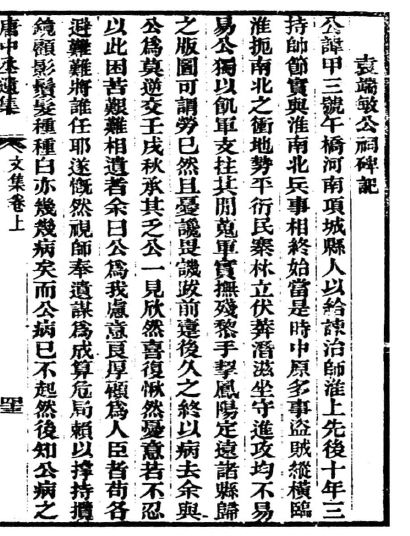 袁端敏公祠碑記
公諱甲三號午橋河南項城縣人以給諫治師淮上先後十年三
持師節實與淮南北兵事相終始當是時中原多事盜賊縱橫臨
淮扼南北之衝地勢平衍民寨林立伏莽潛滋坐守進攻均不易
易公獨以飢軍支拄其閒蒐軍實撫殘黎手挈鳳陽定遠諸縣歸
之版圖可謂勞已然且憂讒畏譏跋前疐後久之終以病去余與
公爲莫逆交壬戌秋承其乏公一見欣然喜復愀然憂意若不忍
以此困苦艱難相遺者余曰公爲我慮意良厚顧爲人臣者苟各
避難難將誰任耶遂慨然視師奉遺謀爲成算危局賴以撐持攬
鏡顧影鬚髮種種白亦幾幾病矣而公病已不起然後知公病之
唐中丞遺集
文集卷上